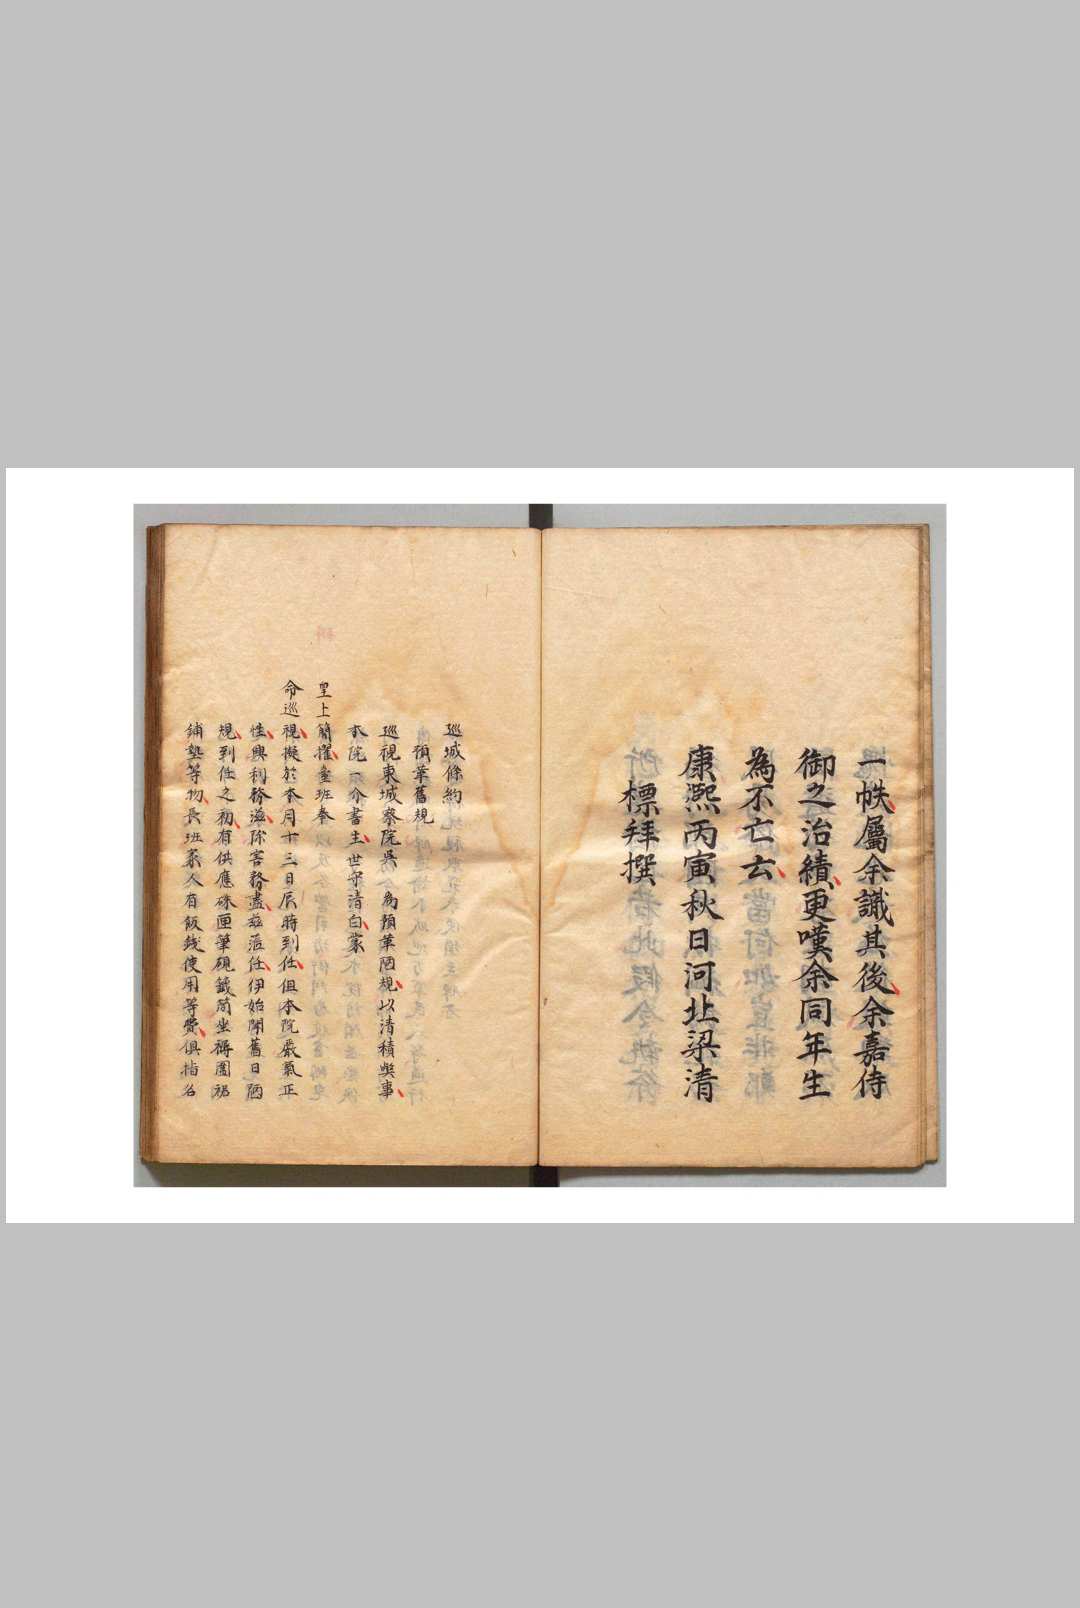 一帙屬余識其後余嘉侍
御之治績更嘆余同年生
為不亡云
康熙丙寅秋日河北梁清
標拜撰
巡城條約
預革舊規
巡視東城察院吳為預革陋規以清積獘事
本院一介書生世守清白蒙
皇上簡擢臺班奉
命巡視擬於本月十三日辰時到任但本院嚴氣正
性興利務滋除害務盡茲蒞任伊始閘舊日陋
規到任之初有供應硃匣筆硯籤筒坐褥圍裙
鋪墊等物長班家人有飯錢使用等費俱指名